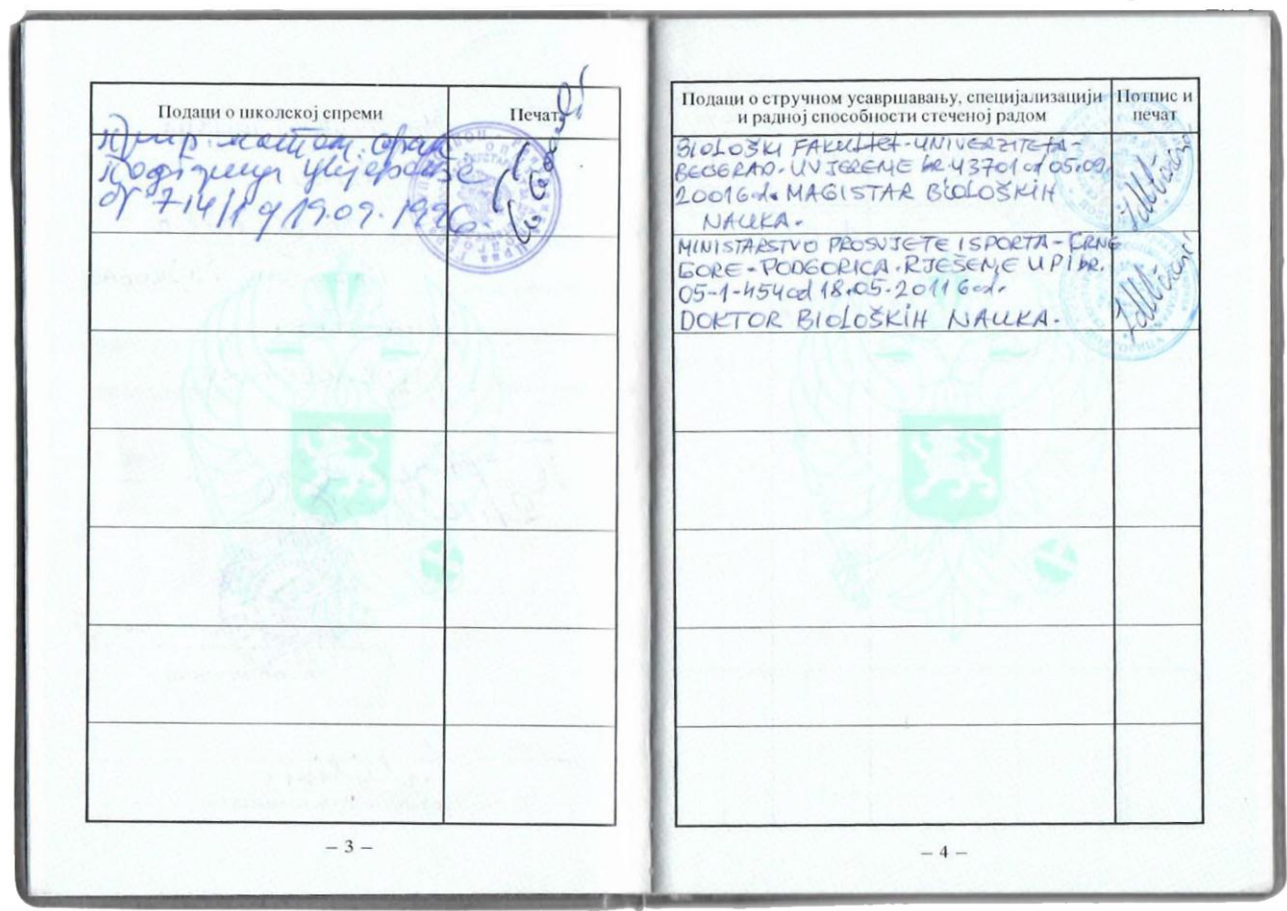 Подаци о школској спреми
Печат
отсјек
подгрица увјерење
бр 714/1 од 19.09. 1996.
– 3 –
Подаци о стручном усавршавању, специјализацији
и радној способности стеченој радом
Потпис и
печат
BIOLOŠKI FAKULTET-UNIVERZITETA-
BEOGRAD. UVJERENJE br 43701 od 05.09.
2001 God. MAGISTAR BIOLOŠKIH
NAUKA.
MINISTARSTVO PROSVJETE I SPORTA - CRNE
GORE - PODGORICA. RJEŠENJE UPI br.
05-1-454 od 18.05.2011 God.
DOKTOR BIOLOŠKIH NAUKA.
– 4 –